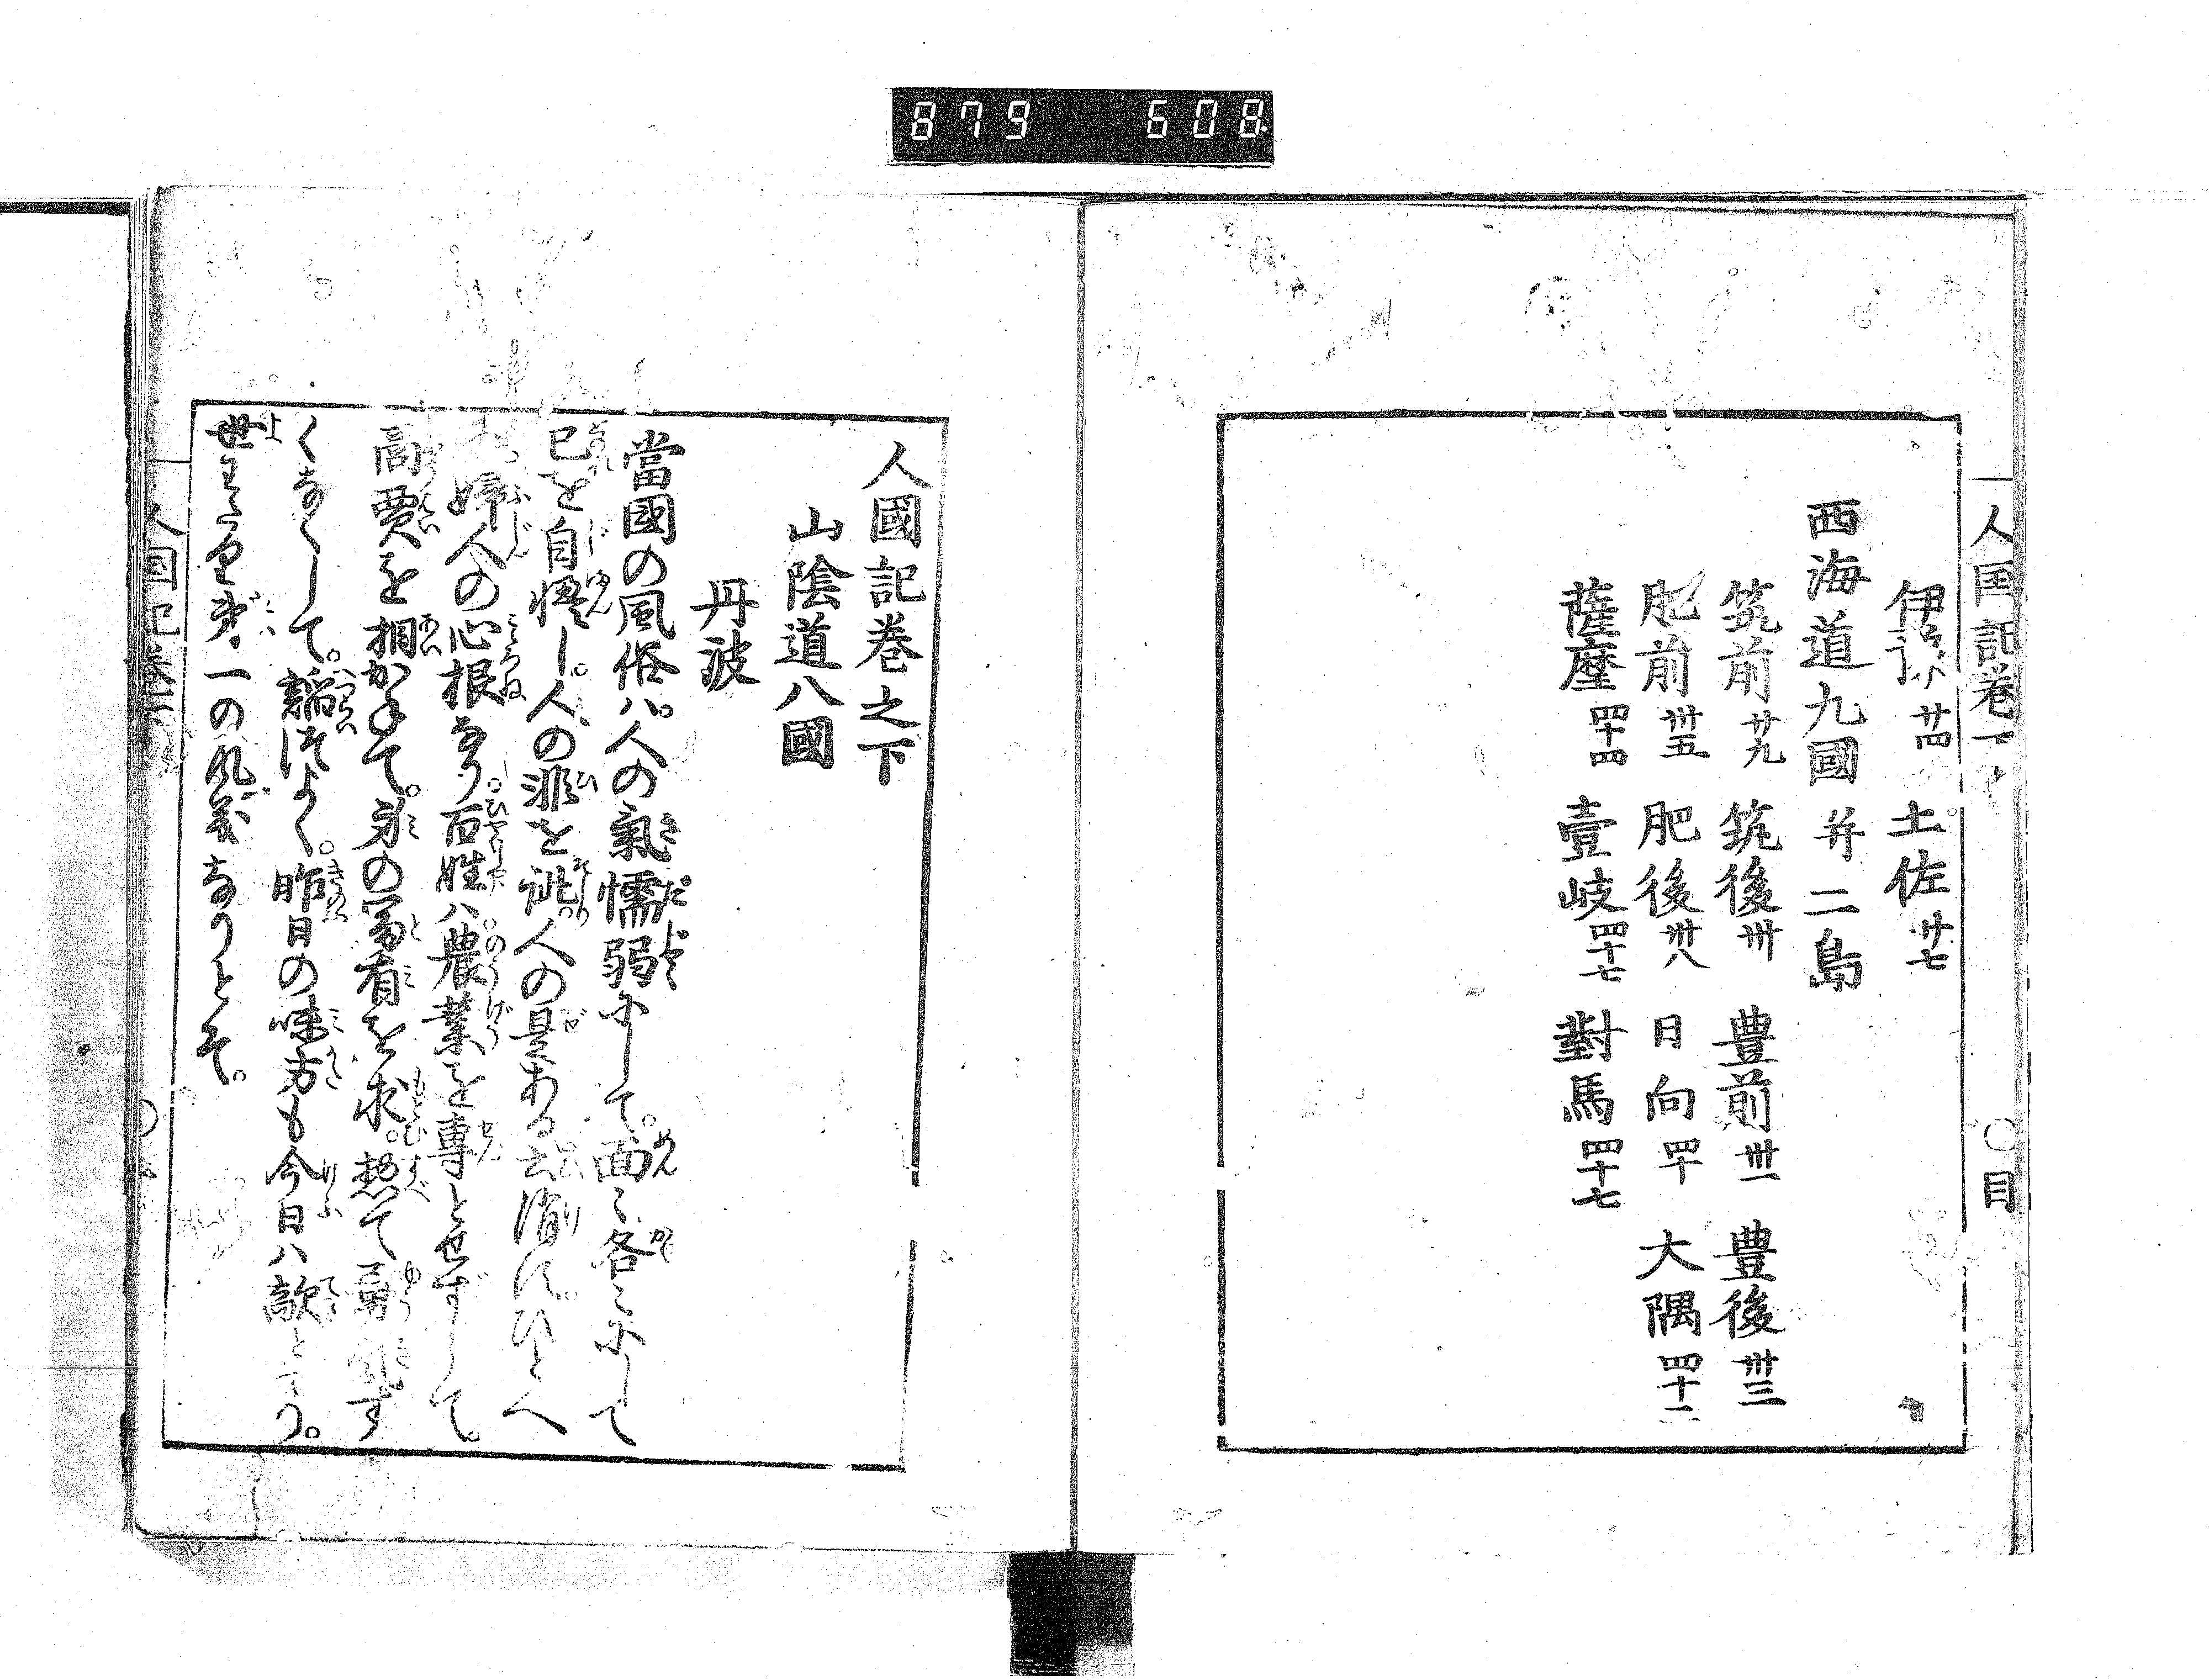 879 608
人国記巻下
○目
伊予 廿四 土佐 廿七
西海道九國 并二島
筑前 廿九 筑後 卅 豊前 卅一 豊後 卅三
肥前 卅五 肥後 卅八 日向 四十 大隅 四十二
薩摩 四十四 壹岐 四十七 對馬 四十七
人國記巻之下
山陰道八國
丹波
當國の風俗ハ。人の氣懦弱にして。面〻各〻にして
己を自慢し。人の非を誹。人の是ある
婦人の心根なり。百姓ハ農業を専とせずして。
商賈を相かねて。身の冨有を求。惣て勇氣す
くなくして。謟つよく。昨日の味方も今日ハ敵となり。
世 一の風義なりとそ。
人国記巻下